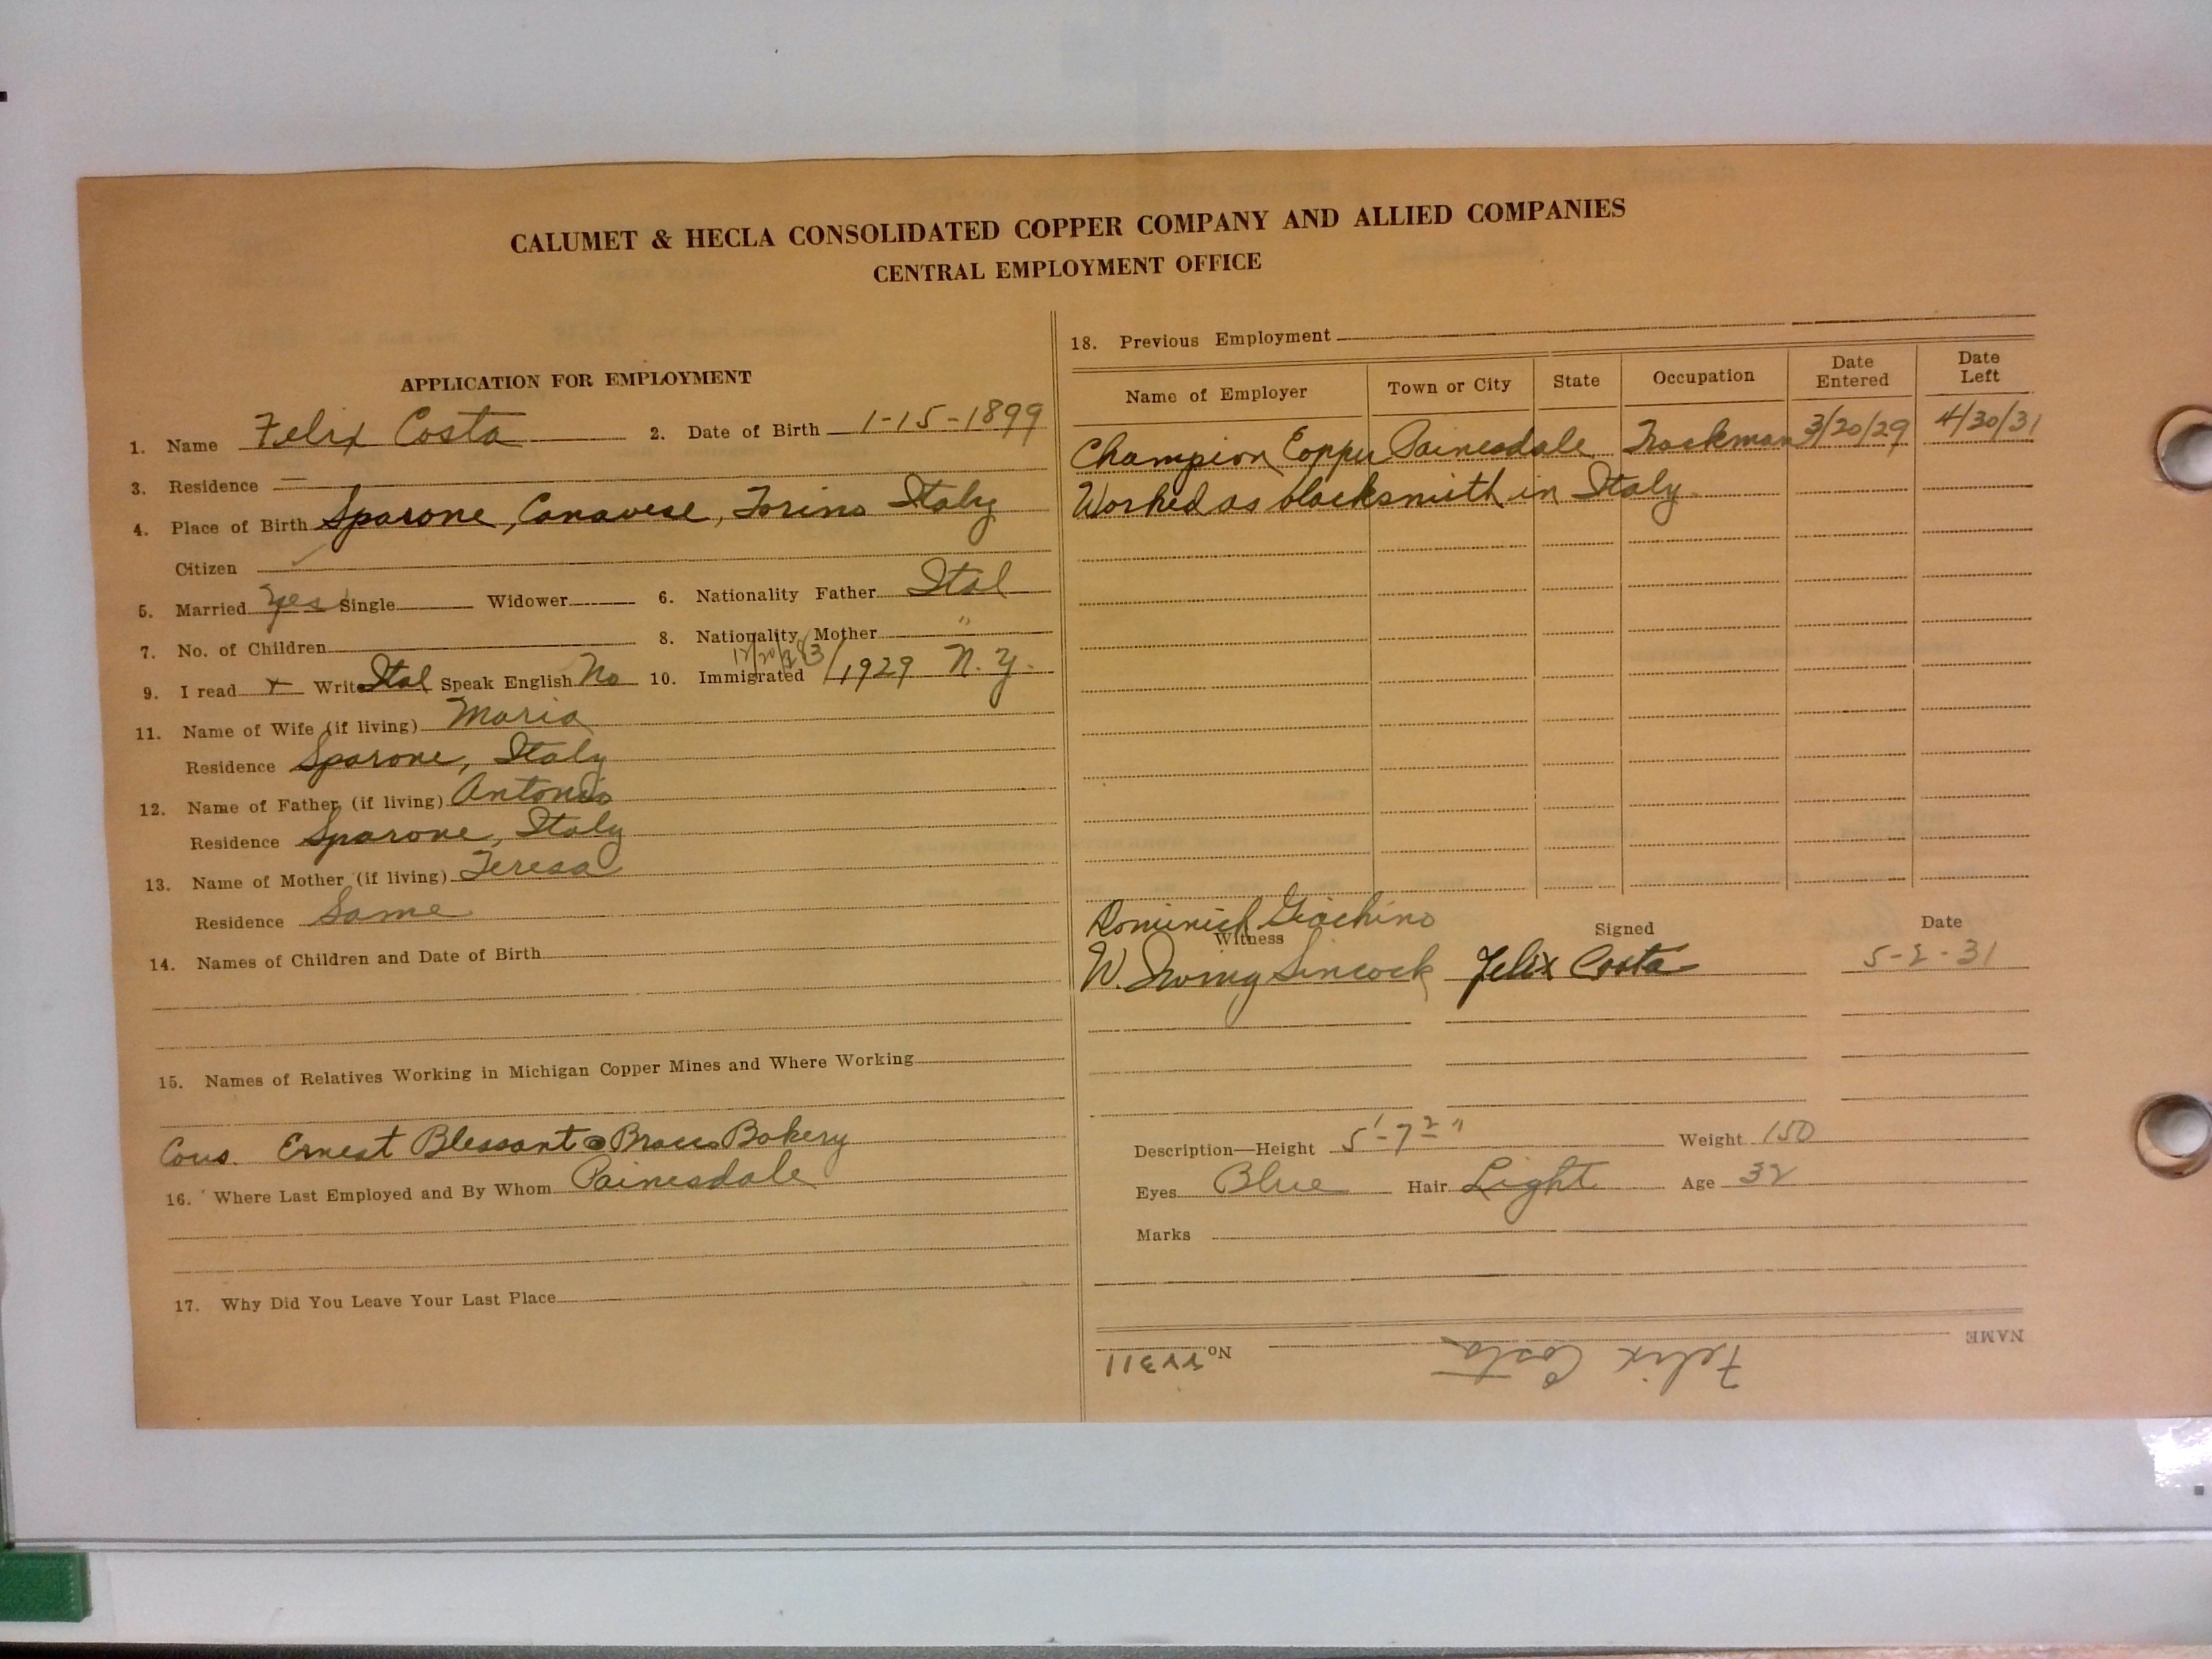 CALUMET & HECLA CONSOLIDATED COPPER COMPANY AND ALLIED COMPANIES
CENTRAL EMPLOYMENT OFFICE
APPLICATION FOR EMPLOYMENT
1. Name Felix Costa 2. Date of Birth 1-15-1899
3. Residence —
4. Place of Birth Sparone, Canavese, Torino Italy
Citizen
5. Married Yes Single Widower 6. Nationality Father Ital
7. No. of Children 8. Nationality Mother "
9. I read x Write Ital Speak English No 10. Immigrated /1929 N.Y.
11. Name of Wife (if living) Maria
Residence Sparone, Italy
12. Name of Father (if living) Antonio
Residence Sparone, Italy
13. Name of Mother (if living) Teresa
Residence Same
14. Names of Children and Date of Birth
15. Names of Relatives Working in Michigan Copper Mines and Where Working
Cous. Ernest Blessant Bakery
16. Where Last Employed and By Whom Painesdale
17. Why Did You Leave Your Last Place
18. Previous Employment
Name of Employer Town or City State Occupation Date Entered Date Left
Champion Copper Painesdale Trackman 3/20/29 4/30/31
Worked as blacksmith in Italy
Dominick Giachino
Witness Signed Date
W. Irving Sincock Felix Costa 5-2-31
Description—Height 5'-7 2" Weight 150
Eyes Blue Hair Light Age 32
Marks
NAME Felix Costa No. 22311